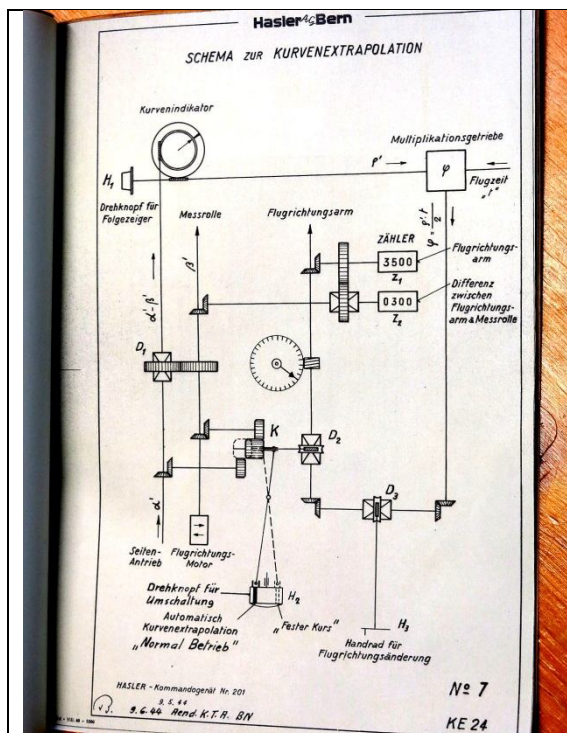 Hasler AG Bern
SCHEMA ZUR KURVENEXTRAPOLATION
Kurvenindikator
Multiplikationsgetriebe
ρ'
φ
H1
Flugzeit
"t"
Drehknopf für
Folgezeiger
Messrolle
Flugrichtungsarm
φ = ρ'·t/2
ZÄHLER
3500
Z1
Flugrichtungs-
arm
β'
0300
Z2
Differenz
zwischen
Flugrichtungs-
arm & Messrolle
α'-β'
D1
K
D2
D3
α'
Seiten-
Antrieb
Flugrichtungs-
Motor
Drehknopf für
Umschaltung
H2
Automatisch
Kurvenextrapolation
„Normal Betrieb"
„Fester Kurs"
H3
Handrad für
Flugrichtungsänderung
HASLER - Kommandogerät Nr. 201
9.5.44
9.6.44 Aend. K.T.A. BN
No 7
KE 24